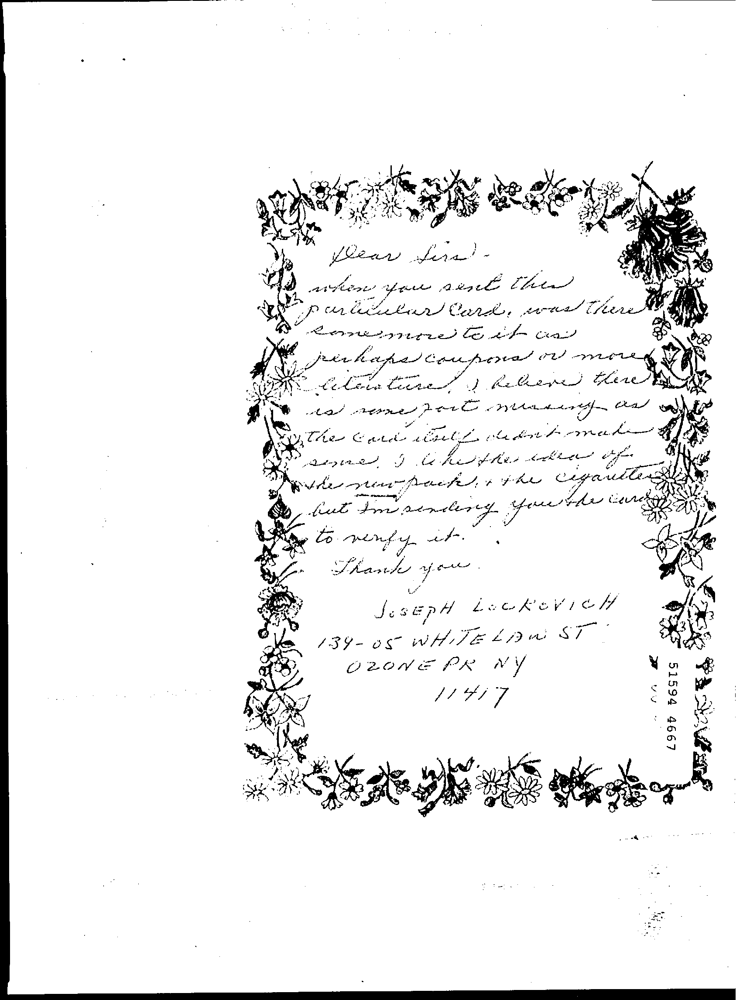 Dear Sirs -
when you sent this
particular Card, was there
some more to it as
perhaps coupons or more
literature. I believe there
is some part missing as
the Card itself didn't make
sense. I like the idea of
the new pack, + the cigarettes
but I'm sending you the card
to verify it.
Thank you.
JOSEPH LOCKOVICH
139-05 WHITELAW ST
OZONE PK NY
11417
51594 4667